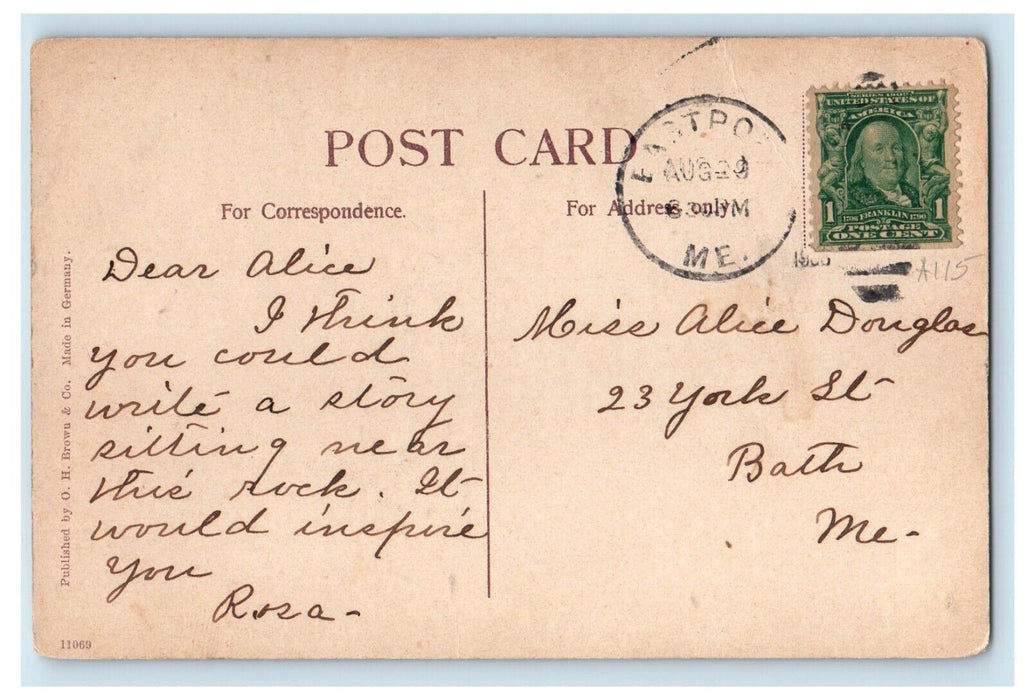 POST CARD
For Correspondence.
For Address only.
Dear Alice
I think
you could
write a story
sitting near
this rock. It
would inspire
you
Rosa-
Miss Alice Douglas
23 York St
Bath
Me-
AUG 29
ME.
SERIES 1902
UNITED STATES OF
AMERICA
1706 FRANKLIN 1790
1 1
POSTAGE
ONE CENT
A115
Published by O. H. Brown & Co. Made in Germany.
11069